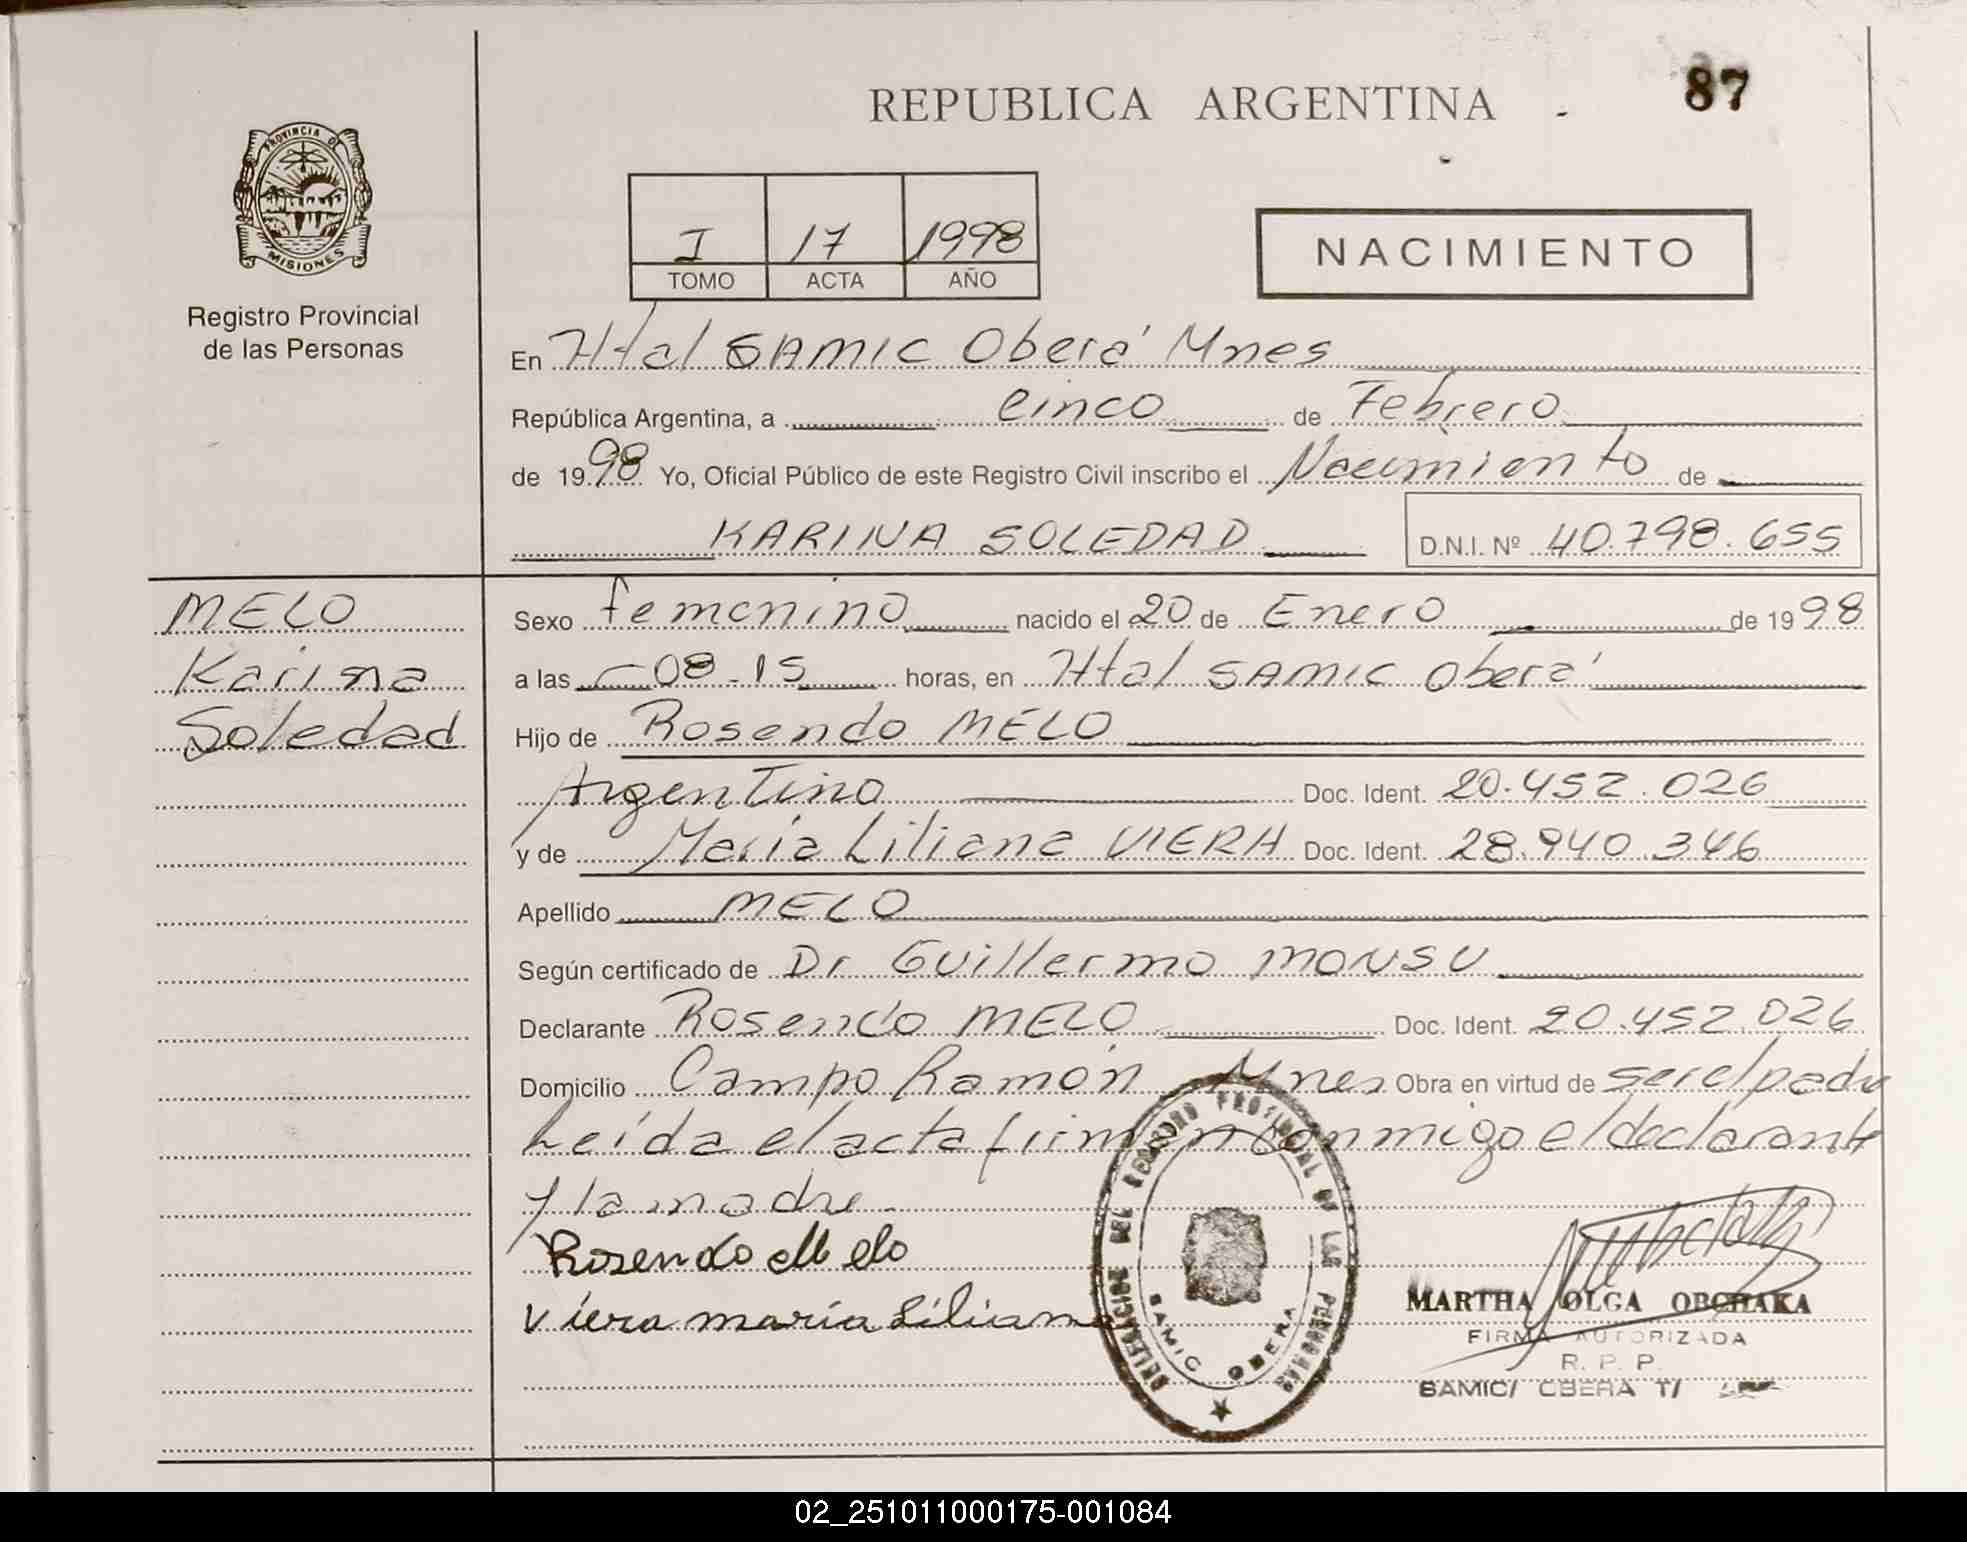 REPUBLICA ARGENTINA
87
PROVINCIA DE
MISIONES
Registro Provincial
de las Personas
I 17 1998
TOMO ACTA AÑO
NACIMIENTO
En Htal SAMIC Oberá Mnes
República Argentina, a cinco de Febrero
de 1998 Yo, Oficial Público de este Registro Civil inscribo el Nacimiento de
KARINA SOLEDAD D.N.I. Nº 40.798.655
MELO
Karina
Soledad
Sexo femenino nacido el 20 de Enero de 1998
a las 08-15 horas, en Htal SAMIC Oberá
Hijo de Rosendo MELO
Argentino Doc. Ident. 20.452.026
y de María Liliana VIERA Doc. Ident. 28.940.346
Apellido MELO
Según certificado de Dr Guillermo MONSU
Declarante Rosendo MELO Doc. Ident. 20.452.026
Domicilio Campo Ramón Mnes Obra en virtud de ser el padre
Leída el acta firman conmigo el declarante
y la madre.
Rosendo Melo
Viera maria Liliana
DELEGACION DEL REGISTRO PROVINCIAL DE LAS PERSONAS
SAMIC OBERA
MARTHA OLGA OBCHAKA
FIRMA AUTORIZADA
R. P. P.
SAMIC/ OBERA T/
02_251011000175-001084